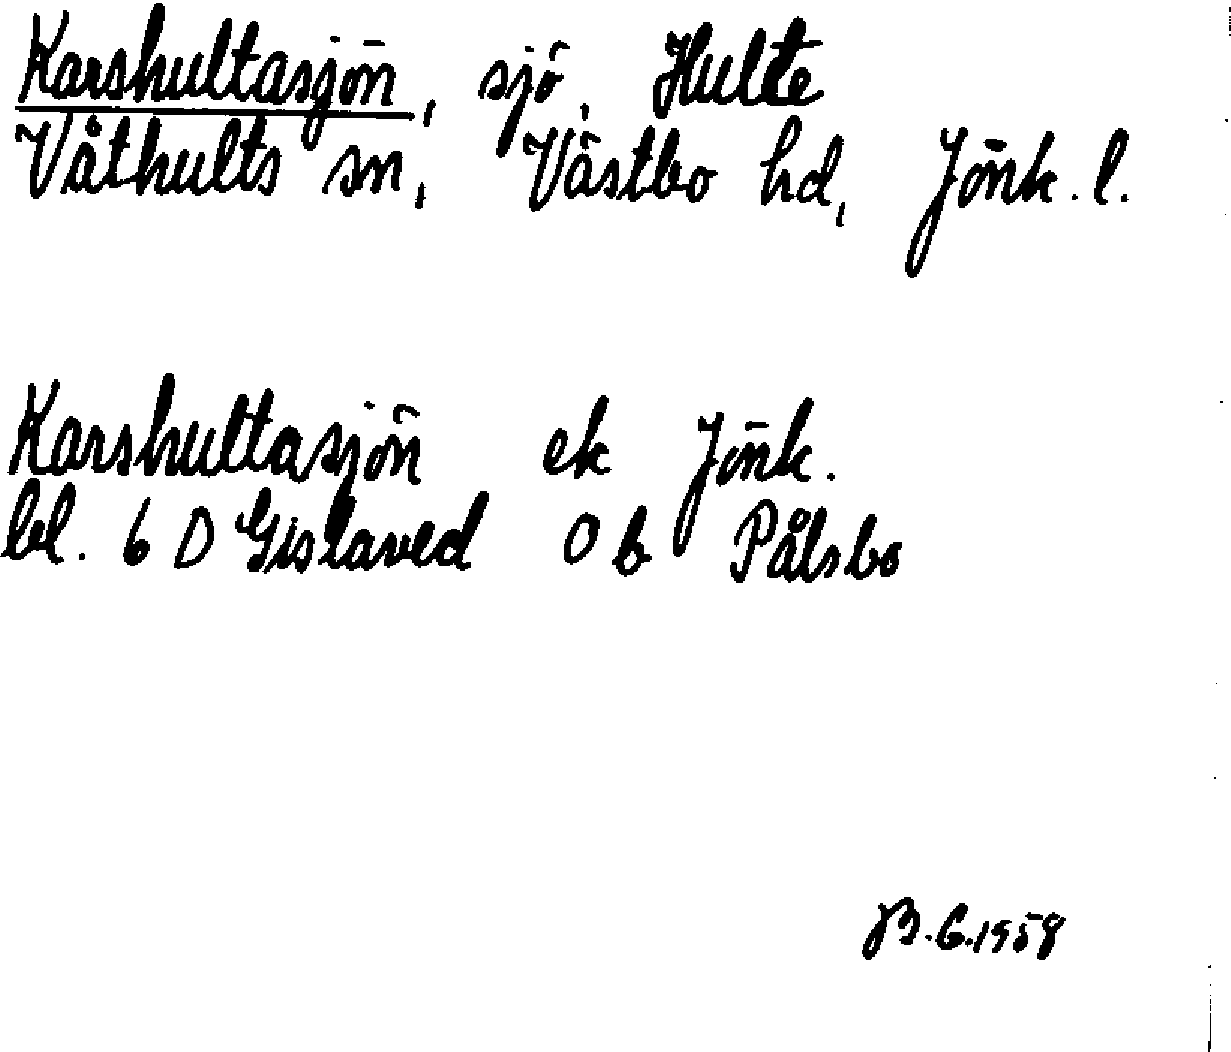 Karshultasjön, sjö, Hulte
Våthults sn, Västbo hd, Jönk. l.
Karshultasjön ek Jönk.
bl. 6 D Gislaved 0 b Pålsbo
B.G. 1958